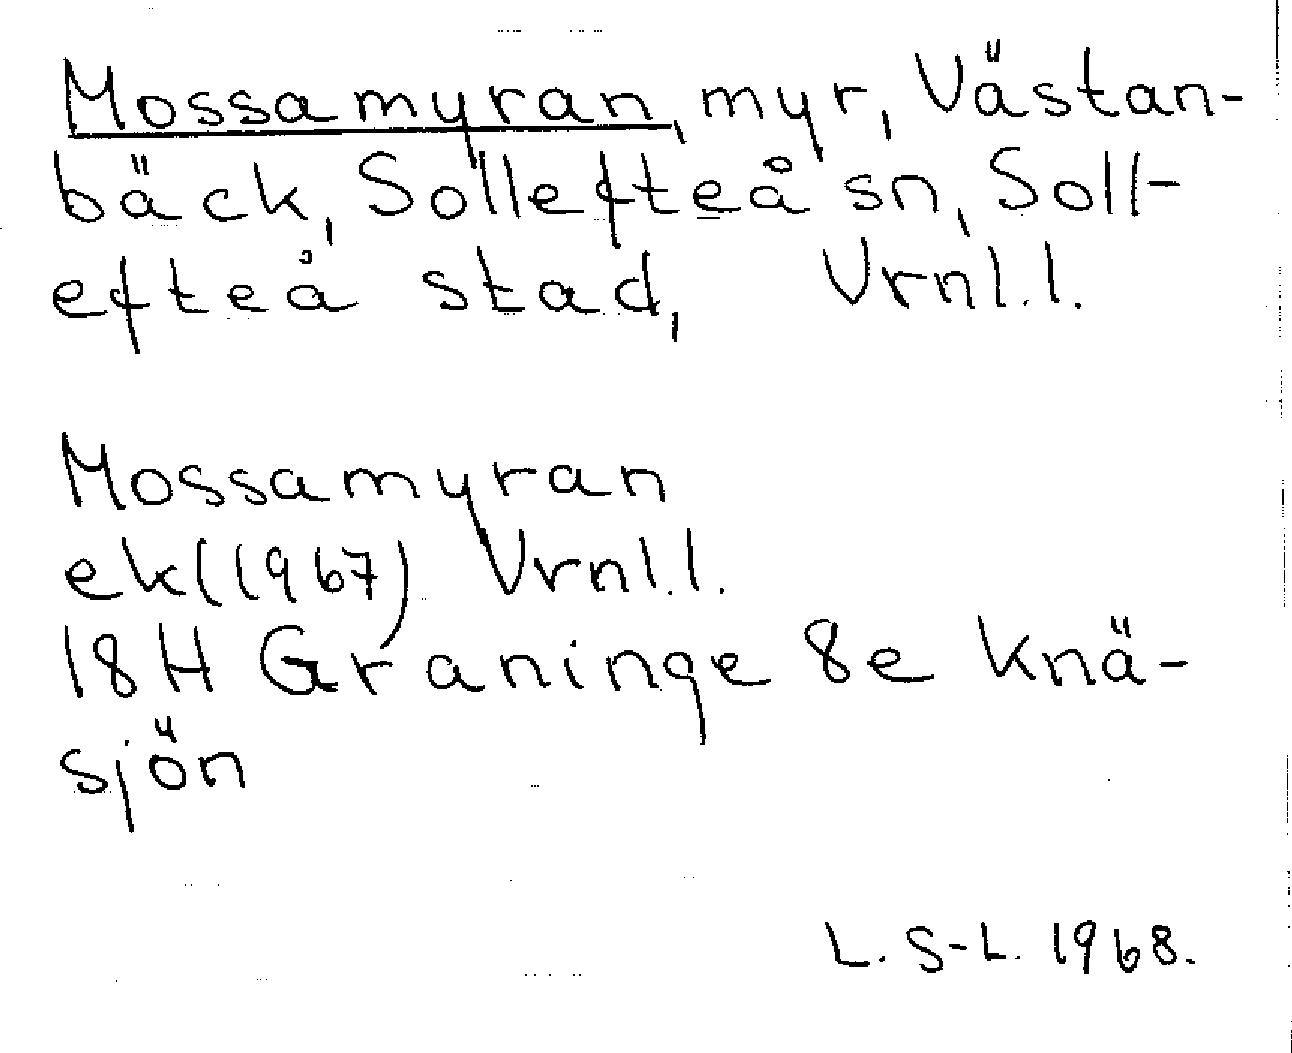 Mossamyran, myr, Västan-
bäck, Sollefteå sn, Soll-
efteå stad, Vrnl.l.
Mossamyran
ek(1967) Vrnl.l.
18H Graninge 8e Knä-
sjön
L. S-L. 1968.